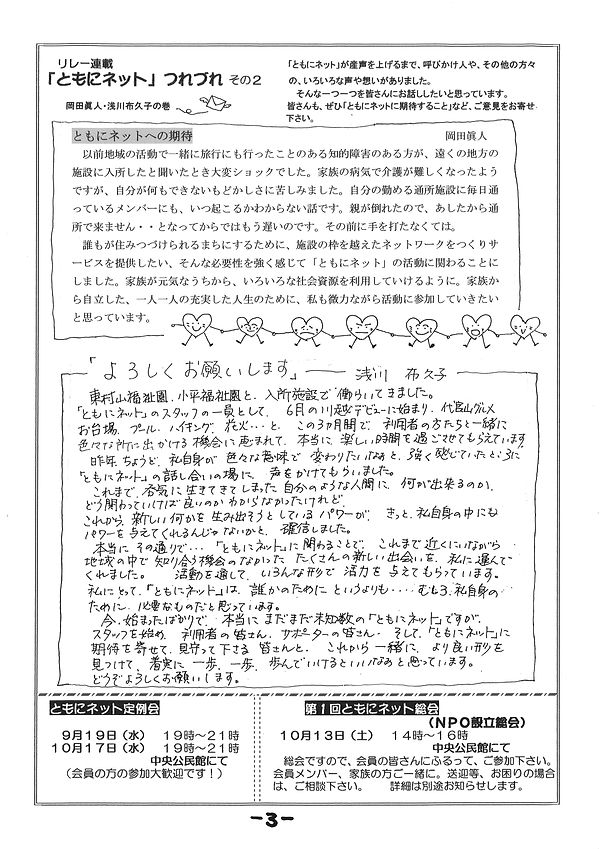 リレー連載
「ともにネット」つれづれ その２
岡田眞人・浅川布久子の巻
「ともにネット」が産声を上げるまで、呼びかけ人や、その他の方々
の、いろいろな声や想いがありました。
そんな一つ一つを皆さんにお話ししたいと思っています。
皆さんも、ぜひ「ともにネットに期待すること」など、ご意見をお寄せ
下さい。
ともにネットへの期待
岡田眞人
以前地域の活動で一緒に旅行にも行ったことのある知的障害のある方が、遠くの地方の
施設に入所したと聞いたとき大変ショックでした。家族の病気で介護が難しくなったよう
ですが、自分が何もできないもどかしさに苦しみました。自分の勤める通所施設に毎日通
っているメンバーにも、いつ起こるかわからない話です。親が倒れたので、あしたから通
所で来ません・・となってからではもう遅いのです。その前に手を打たなくては。
誰もが住みつづけられるまちにするために、施設の枠を越えたネットワークをつくりサ
ービスを提供したい、そんな必要性を強く感じて「ともにネット」の活動に関わることに
しました。家族が元気なうちから、いろいろな社会資源を利用していけるように。家族か
ら自立した、一人一人の充実した人生のために、私も微力ながら活動に参加していきたい
と思っています。
「よろしくお願いします」 浅川 布久子
東村山福祉園、小平福祉園と、入所施設で働いてきました。
「ともにネット」のスタッフの一員として、6月の川越デビューに始まり、代官山グルメ
お台場、プール、ハイキング、花火…と、この3カ月間で、利用者の方たちと一緒に
色々な所に出かける機会に恵まれて、本当に楽しい時間を過ごさせてもらえています
昨年、ちょうど、私自身が色々な意味で変わりたいなあと、強く感じていたところに
「ともにネット」の話し合いの場に、声をかけてもらいました。
これまで、呑気に生きてきてしまった自分のような人間に、何が出来るのか、
どう関わっていけば良いのかわからなかったけれど、
これから、新しい何かを生み出そうとしているパワーが、きっと、私自身の中にも
パワーを与えてくれるんじゃないかと、確信しました。
本当にその通りで…「ともにネット」に関わることで、これまで近くにいながら
地域の中で知り合う機会のなかった、たくさんの新しい出会いを、私に運んで
くれました。 活動を通して、いろんな形で活力を与えてもらっています。
私にとって、「ともにネット」は、誰かのためにというよりも…‥むしろ、私自身の
ために、必要なものだと思っています。
今、始まったばかりで、本当にまだまだ未知数の「ともにネット」ですが、
スタッフを始め、利用者の皆さん、サポーターの皆さん、そして、「ともにネット」に
期待を寄せて、見守って下さる皆さんと、これから一緒に、より良い形を
見つけて、着実に一歩、一歩、歩んでいけるといいなあと思っています。
どうぞよろしくお願いします。
ともにネット定例会
９月１９日（水） １９時～２１時
１０月１７日（水） １９時～２１時
中央公民館にて
（会員の方の参加大歓迎です！）
第１回ともにネット総会
（ＮＰＯ設立総会）
１０月１３日（土） １４時～１６時
中央公民館にて
総会ですので、会員の皆さんにふるって、ご参加下さい。
会員メンバー、家族の方ご一緒に。送迎等、お困りの場合
は、ご相談下さい。 詳細は別途お知らせします。
-3-